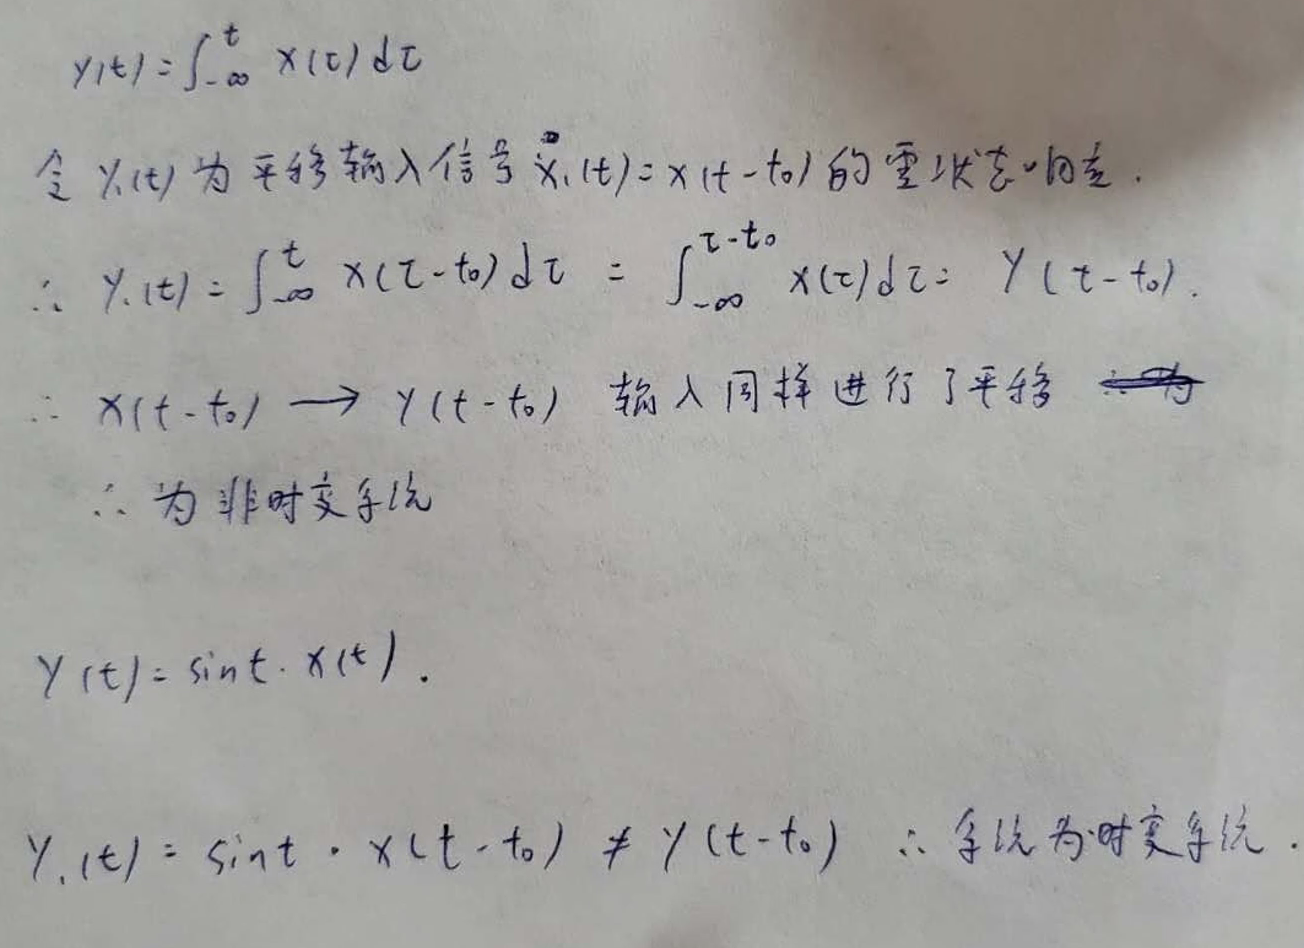 y(t)=∫_{-∞}^{t} x(τ)dτ
令 y₁(t) 为平移输入信号 x₁(t)=x(t-t₀) 的零状态响应.
∴ y₁(t)=∫_{-∞}^{t} x(τ-t₀)dτ = ∫_{-∞}^{τ-t₀} x(τ)dτ= y(τ-t₀).
∴ x(t-t₀) → y(t-t₀) 输入同样进行了平移
∴ 为非时变系统
y(t)=sint·x(t).
y₁(t)=sint·x(t-t₀) ≠ y(t-t₀) ∴系统为时变系统.